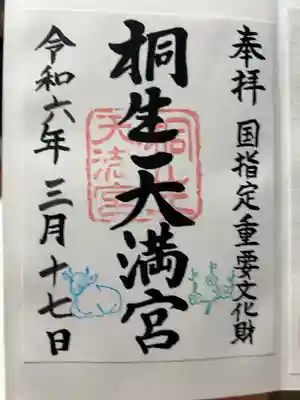 奉拝 国指定重要文化財
桐生天満宮
令和六年 三月 十七日